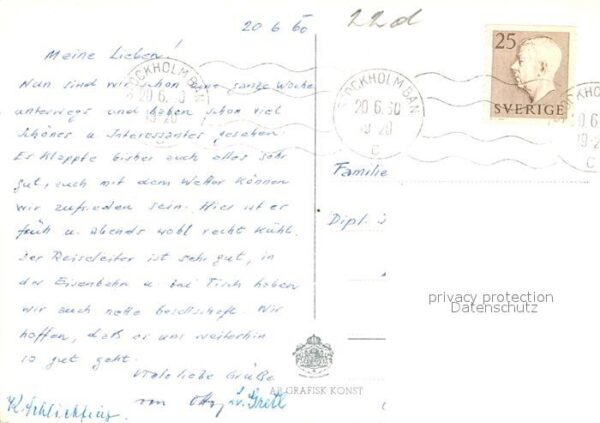 20 6. 60
22d
Meine Lieben!
Nun sind wir schon eine ganze Woche
unterwegs und haben schon viel
Schönes u Interessantes gesehen.
Es klappte bisher auch alles sehr
gut, auch mit dem Wetter können
wir zufrieden sein. Hier ist er
früh u. abends wohl recht kühl.
Der Reiseleiter ist sehr gut, in
der Eisenbahn u. bei Tisch haben
wir auch nette Gesellschaft. Wir
hoffen, daß er uns weiterhin
so gut geht.
Viele liebe Grüße
von Otto
u. Gretl
K. Schlichting.
STOCKHOLM BAN
20 6. 60
19-20
STOCKHOLM BAN
20 6. 60
19-20
C
25
SVERIGE
0 6.
19-2
C
Familie
Dipl.
privacy protection
Datenschutz
AB GRAFISK KONST